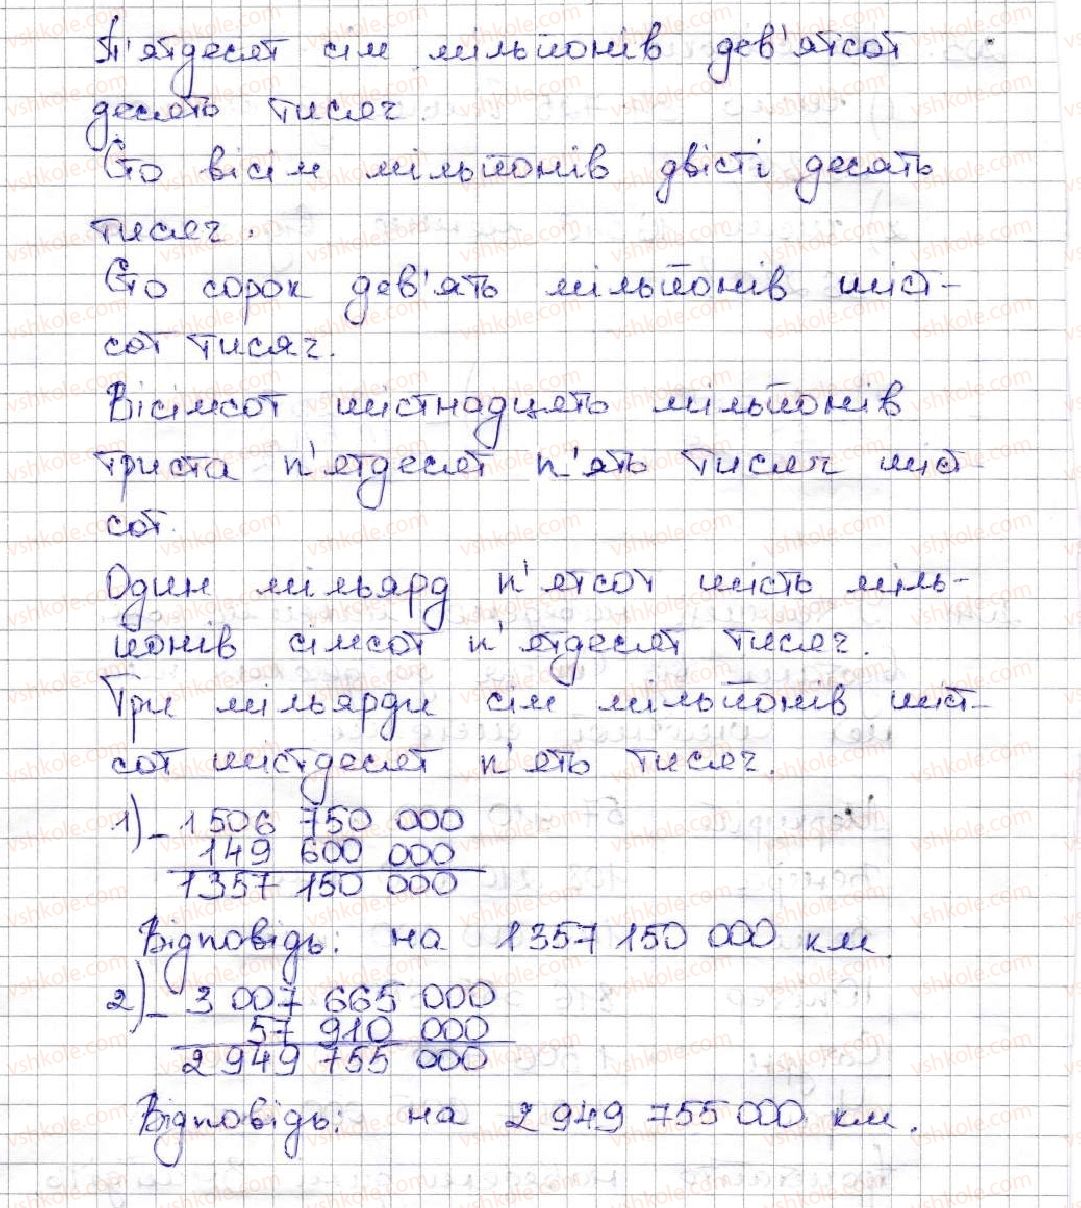 П'ятдесят сім мільйонів дев'ятсот
десять тисяч.
Сто вісім мільйонів двісті десять
тисяч.
Сто сорок дев'ять мільйонів шіст-
сот тисяч.
Вісімсот шістнадцять мільйонів
триста п'ятдесят п'ять тисяч шіст-
сот.
Один мільярд п'ятсот шість міль-
йонів сімсот п'ятдесят тисяч.
Три мільярди сім мільйонів шіст-
сот шістдесят п'ять тисяч.
1) - 1506 750 000
149 600 000
1357 150 000
Відповідь: на 1357 150 000 км.
2) - 3 007 665 000
57 910 000
2 949 755 000
Відповідь: на 2 949 755 000 км.